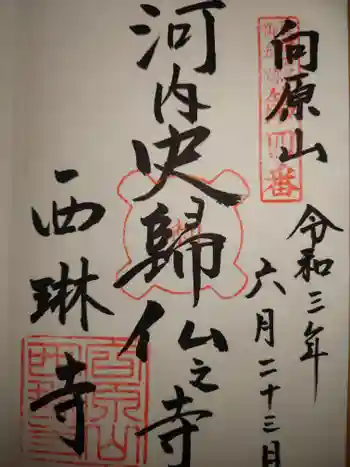 向原山
第四番
令和三年
六月二十三日
河内史歸仏之寺
西琳寺